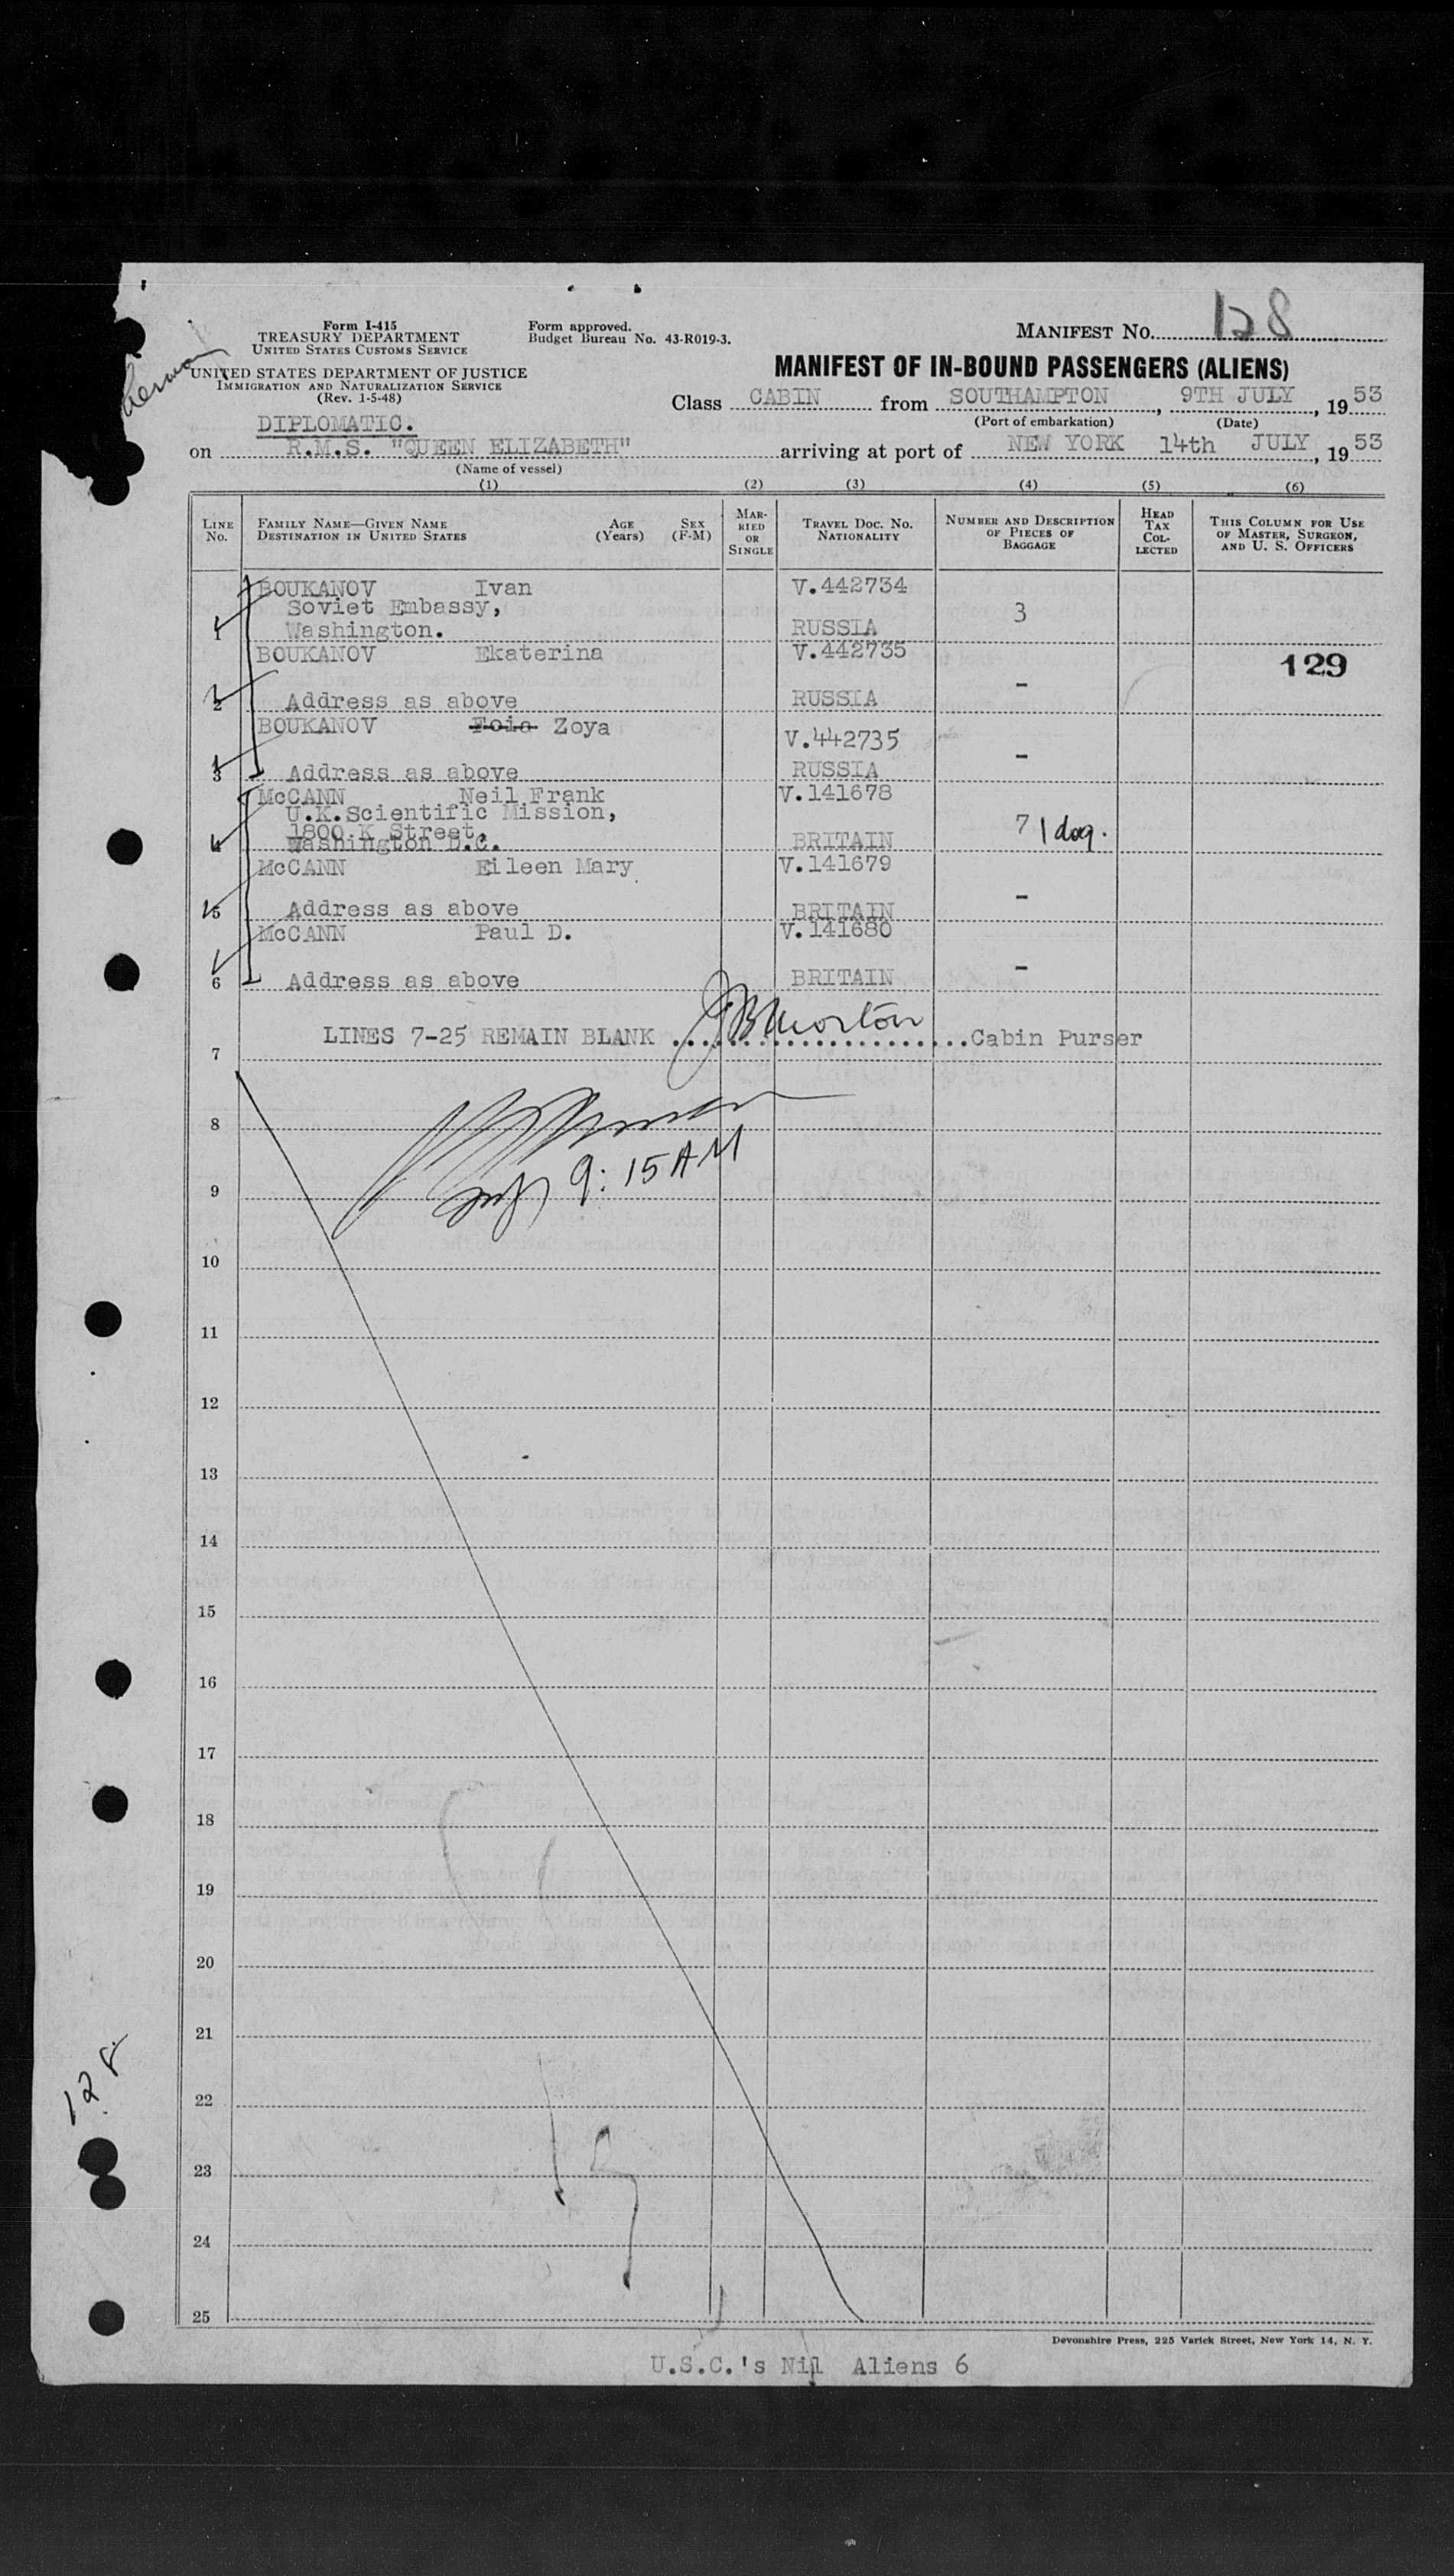 Form I-415
TREASURY DEPARTMENT
UNITED STATES CUSTOMS SERVICE
UNITED STATES DEPARTMENT OF JUSTICE
IMMIGRATION AND NATURALIZATION SERVICE
(Rev. 1-5-48)
Form approved.
Budget Bureau No. 43-R019-3.
MANIFEST No. 128
MANIFEST OF IN-BOUND PASSENGERS (ALIENS)
Class CABIN from SOUTHAMPTON, 9TH JULY, 1953
(Port of embarkation) (Date)
DIPLOMATIC.
on R.M.S. "QUEEN ELIZABETH" arriving at port of NEW YORK 14th JULY, 1953
(Name of vessel)
(1) (2) (3) (4) (5) (6)
LINE No.
FAMILY NAME—GIVEN NAME
DESTINATION IN UNITED STATES
AGE (Years)
SEX (F-M)
MARRIED OR SINGLE
TRAVEL DOC. NO. NATIONALITY
NUMBER AND DESCRIPTION OF PIECES OF BAGGAGE
HEAD TAX COLLECTED
THIS COLUMN FOR USE OF MASTER, SURGEON, AND U. S. OFFICERS
BOUKANOV Ivan V.442734
Soviet Embassy, 3
1 Washington. RUSSIA
BOUKANOV Ekaterina V.442735
129
2 Address as above RUSSIA -
BOUKANOV Foia Zoya V.442735
3 Address as above RUSSIA -
McCANN Neil Frank V.141678
U.K.Scientific Mission,
1800 K Street, 7 1 dog.
4 Washington D.C. BRITAIN
McCANN Eileen Mary V.141679
5 Address as above BRITAIN -
McCANN Paul D. V.141680
6 Address as above BRITAIN -
LINES 7-25 REMAIN BLANK JB Morton Cabin Purser
7
8
9:15 AM
9
10
11
12
13
14
15
16
17
18
19
20
21
128
22
23
24
25
Devonshire Press, 225 Varick Street, New York 14, N. Y.
U.S.C.'s Nil Aliens 6